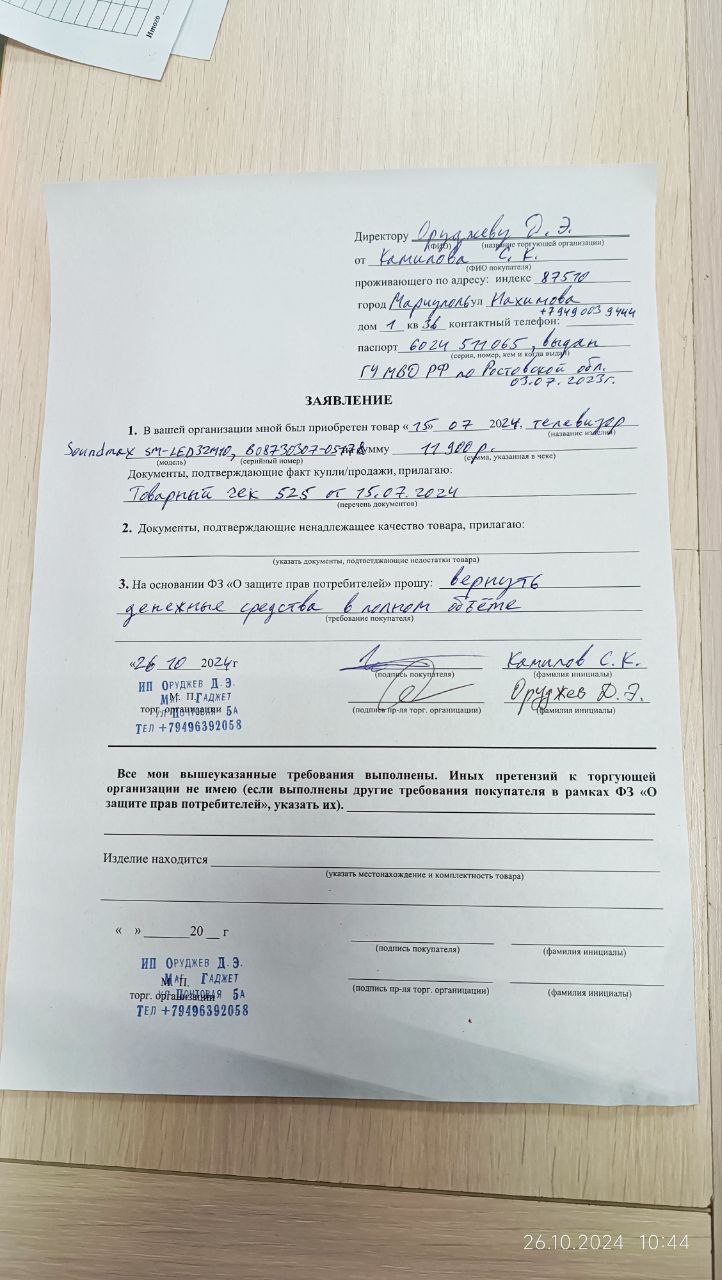 Итого
Директору Оруджеву Д. Э.
(ФИО) (название торгующей организации)
от Камилова С. К.
(ФИО покупателя)
проживающего по адресу: индекс 87510
город Мариуполь ул Нахимова
+7949 003 9444
дом 1 кв 36 контактный телефон:
паспорт 6024 511065, выдан
(серия, номер, кем и когда выдан)
ГУ МВД РФ по Ростовской обл.
03.07.2023г.
ЗАЯВЛЕНИЕ
1. В вашей организации мной был приобретен товар «15» 07 2024, телевизор
(название изделия)
Soundmax SM-LED32M10, B08730307-05478 на сумму 11 900 р.
(модель) (серийный номер) (сумма, указанная в чеке)
Документы, подтверждающие факт купли/продажи, прилагаю:
Товарный чек 525 от 15.07.2024
(перечень документов)
2. Документы, подтверждающие ненадлежащее качество товара, прилагаю:
(указать документы, подтвстджающие недостатки товара)
3. На основании ФЗ «О защите прав потребителей» прошу: вернуть
денежные средства в полном объёме
(требование покупателя)
«26 10 2024г Камилов С. К.
(подпись покупателя) (фамилия инициалы)
ИП Оруджев Д. Э.
М. П. Маг Гаджет Оруджев Д. Э.
торг. организации ул Почтовая 5а (подпись пр-ля торг. органицации) (фамилия инициалы)
Тел +79496392058
Все мои вышеуказанные требования выполнены. Иных претензий к торгующей
организации не имею (если выполнены другие требования покупателя в рамках ФЗ «О
защите прав потребителей», указать их).
Изделие находится
(указать местонахождение и комплектность товара)
« » 20 г
(подпись покупателя) (фамилия инициалы)
ИП Оруджев Д. Э.
М. П. Маг Гаджет
торг. организации ул Почтовая 5а (подпись пр-ля торг. органицации) (фамилия инициалы)
Тел +79496392058
26.10.2024 10:44